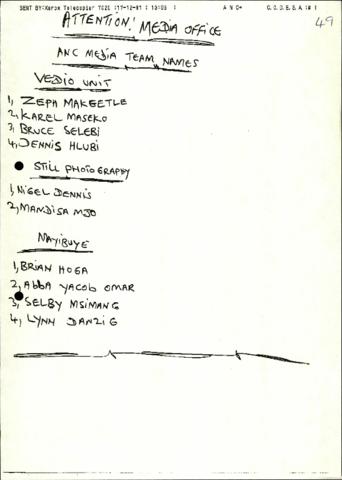 SENT BY:Xerox Telecopier 7020 :17-12-91 : 13:05 : ANC→ C.O.D.E.S.A :# 1
49
ATTENTION! MEDIA OFFICE
ANC MEDIA TEAM NAMES
VEDIO UNIT
1, ZEPH MAKEETLE
2, KAREL MASEKO
3, BRUCE SELEBI
4, DENNIS HLUBI
STILL PHOTOGRAPHY
1, NIGEL DENNIS
2, MANDISA MJO
MAYIBUYE
1, BRIAN HOGA
2, ABBA YACOB OMAR
3, SELBY MSIMANG
4, LYNN DANZIG